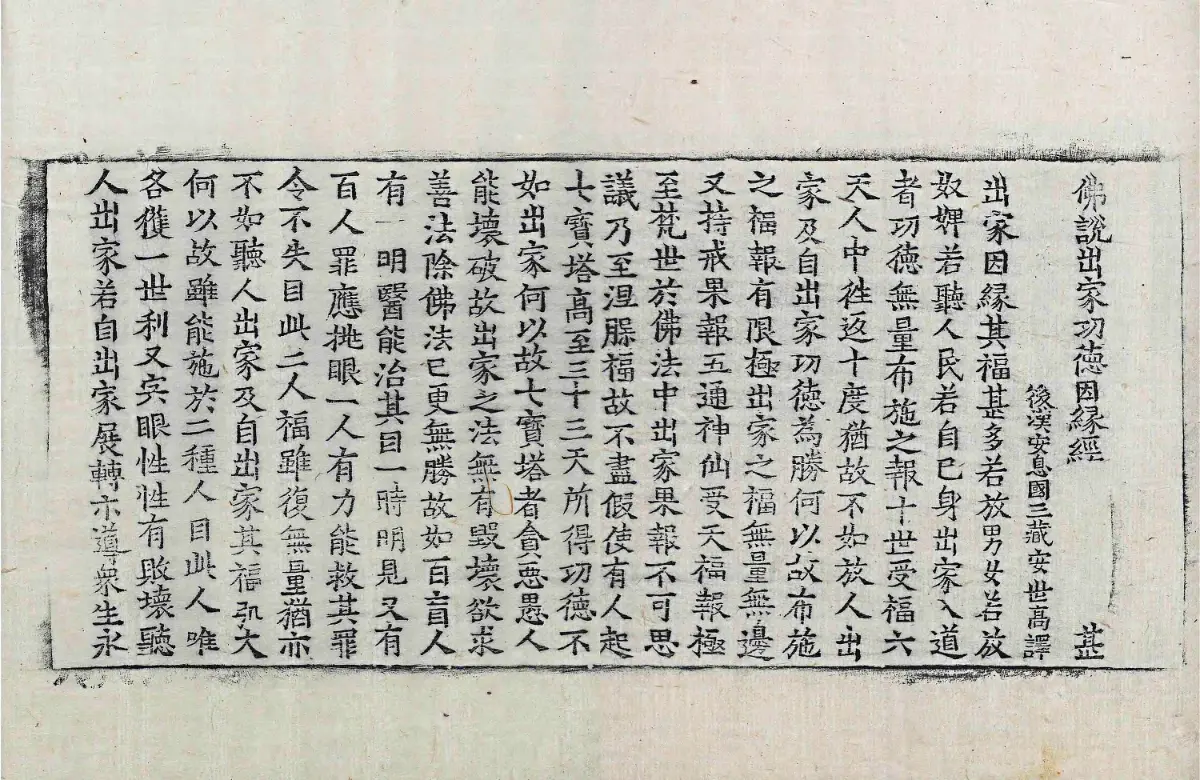 佛說出家功德因緣經 甚
後漢安息國三藏安世高譯
出家因緣其福甚多若放男女若放
奴婢若聽人民若自己身出家入道
者功德無量布施之報十世受福六
天人中往返十度猶故不如放人出
家及自出家功德為勝何以故布施
之福報有限極出家之福無量無邊
又持戒果報五通神仙受天福報極
至梵世於佛法中出家果報不可思
議乃至涅槃福故不盡假使有人起
七寶塔高至三十三天所得功德不
如出家何以故七寶塔者貪惡愚人
能壞破故出家之法無有毀壞欲求
善法除佛法已更無勝故如百盲人
有一明醫能治其目一時明見又有
百人罪應挑眼一人有力能救其罪
令不失目此二人福雖復無量猶亦
不如聽人出家及自出家其福弘大
何以故雖能施於二種人目此人唯
各獲一世利又肉眼性性有敗壞聽
人出家若自出家展轉示導眾生永